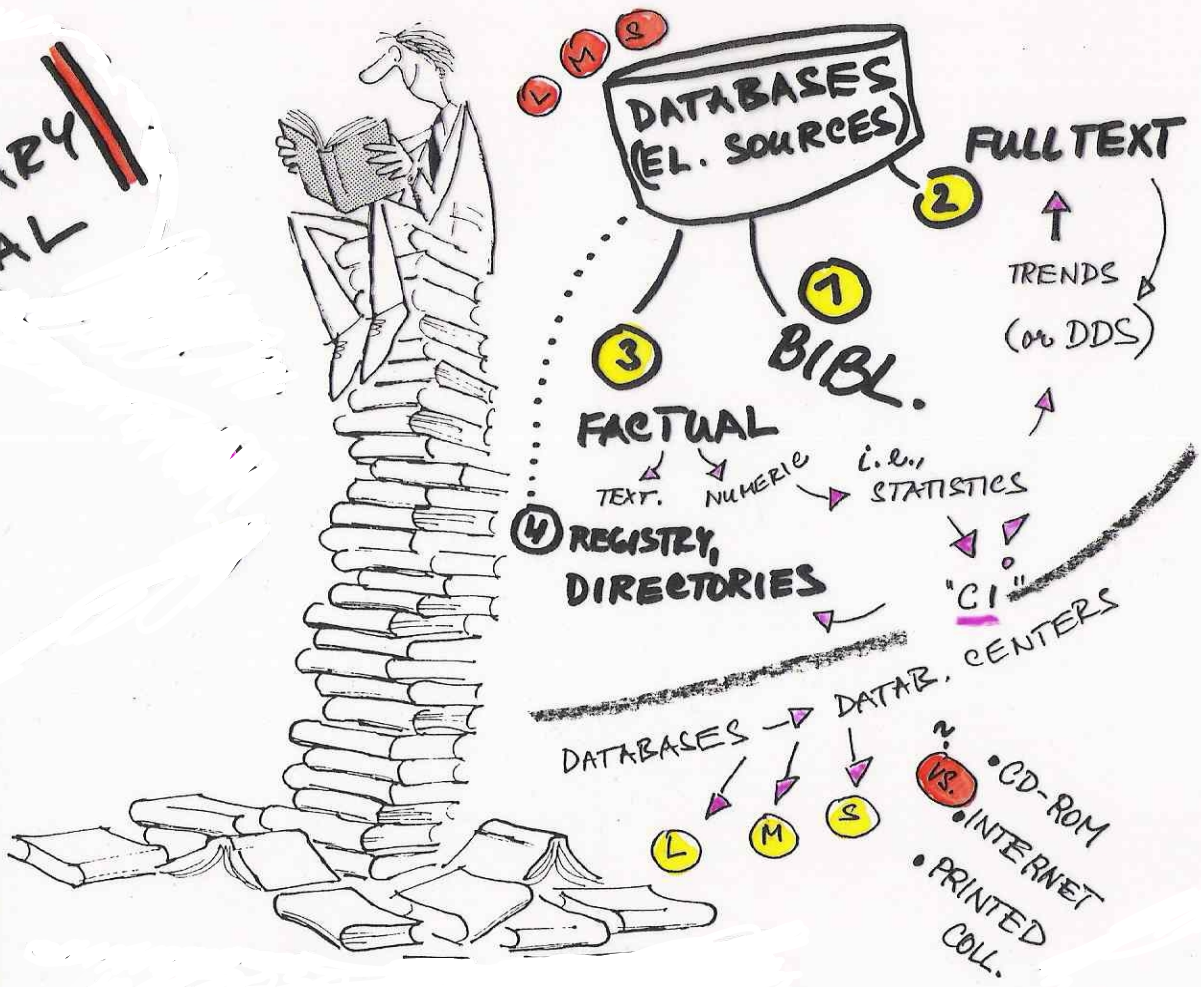 ARY
AL
L M S
DATABASES
(EL. SOURCES)
2 FULL TEXT
TRENDS
(or DDS)
1
BIBL.
3
FACTUAL
TEXT. NUMERIC
i.e.,
STATISTICS
4 REGISTRY,
DIRECTORIES
"CI"
DATABASES
DATAB. CENTERS
L M S
VS.
• CD-ROM
• INTERNET
• PRINTED
COLL.